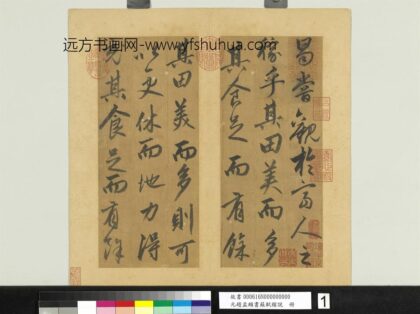 远方书画网-www.yfshuhua.com
曷嘗觀於富人之
稼乎其田美而多
其食足而有餘
其田美而多則可
以更休而地力得
完其食足而有餘
故書 000616N000000000
元趙孟頫書蘇軾稼說 冊
1